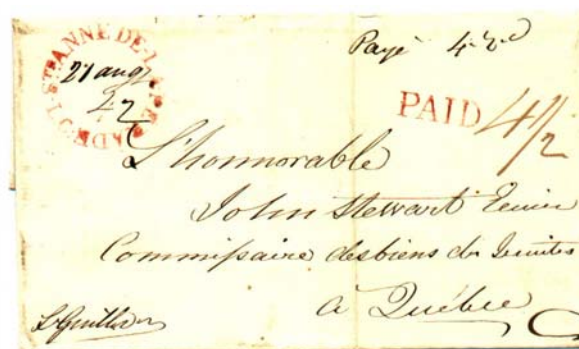 STE ANNE DE-L
21 aug
Payé 4½d
PAID 4½
L'honnorable
John Stewart Ecuier
Commissaire des biens des Jesuites
à Québec